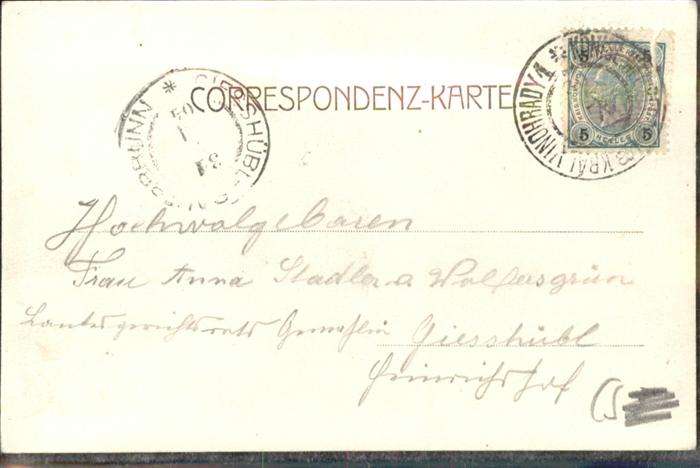 CORRESPONDENZ-KARTE
KRÁL. VINOHRADY 1
5 5
5 5
Hochwolgeboren
Frau Anna Stadler v Wolfersgrün
Landesgerichtsrats Gemahlin Giesshübl
Heinrichshof